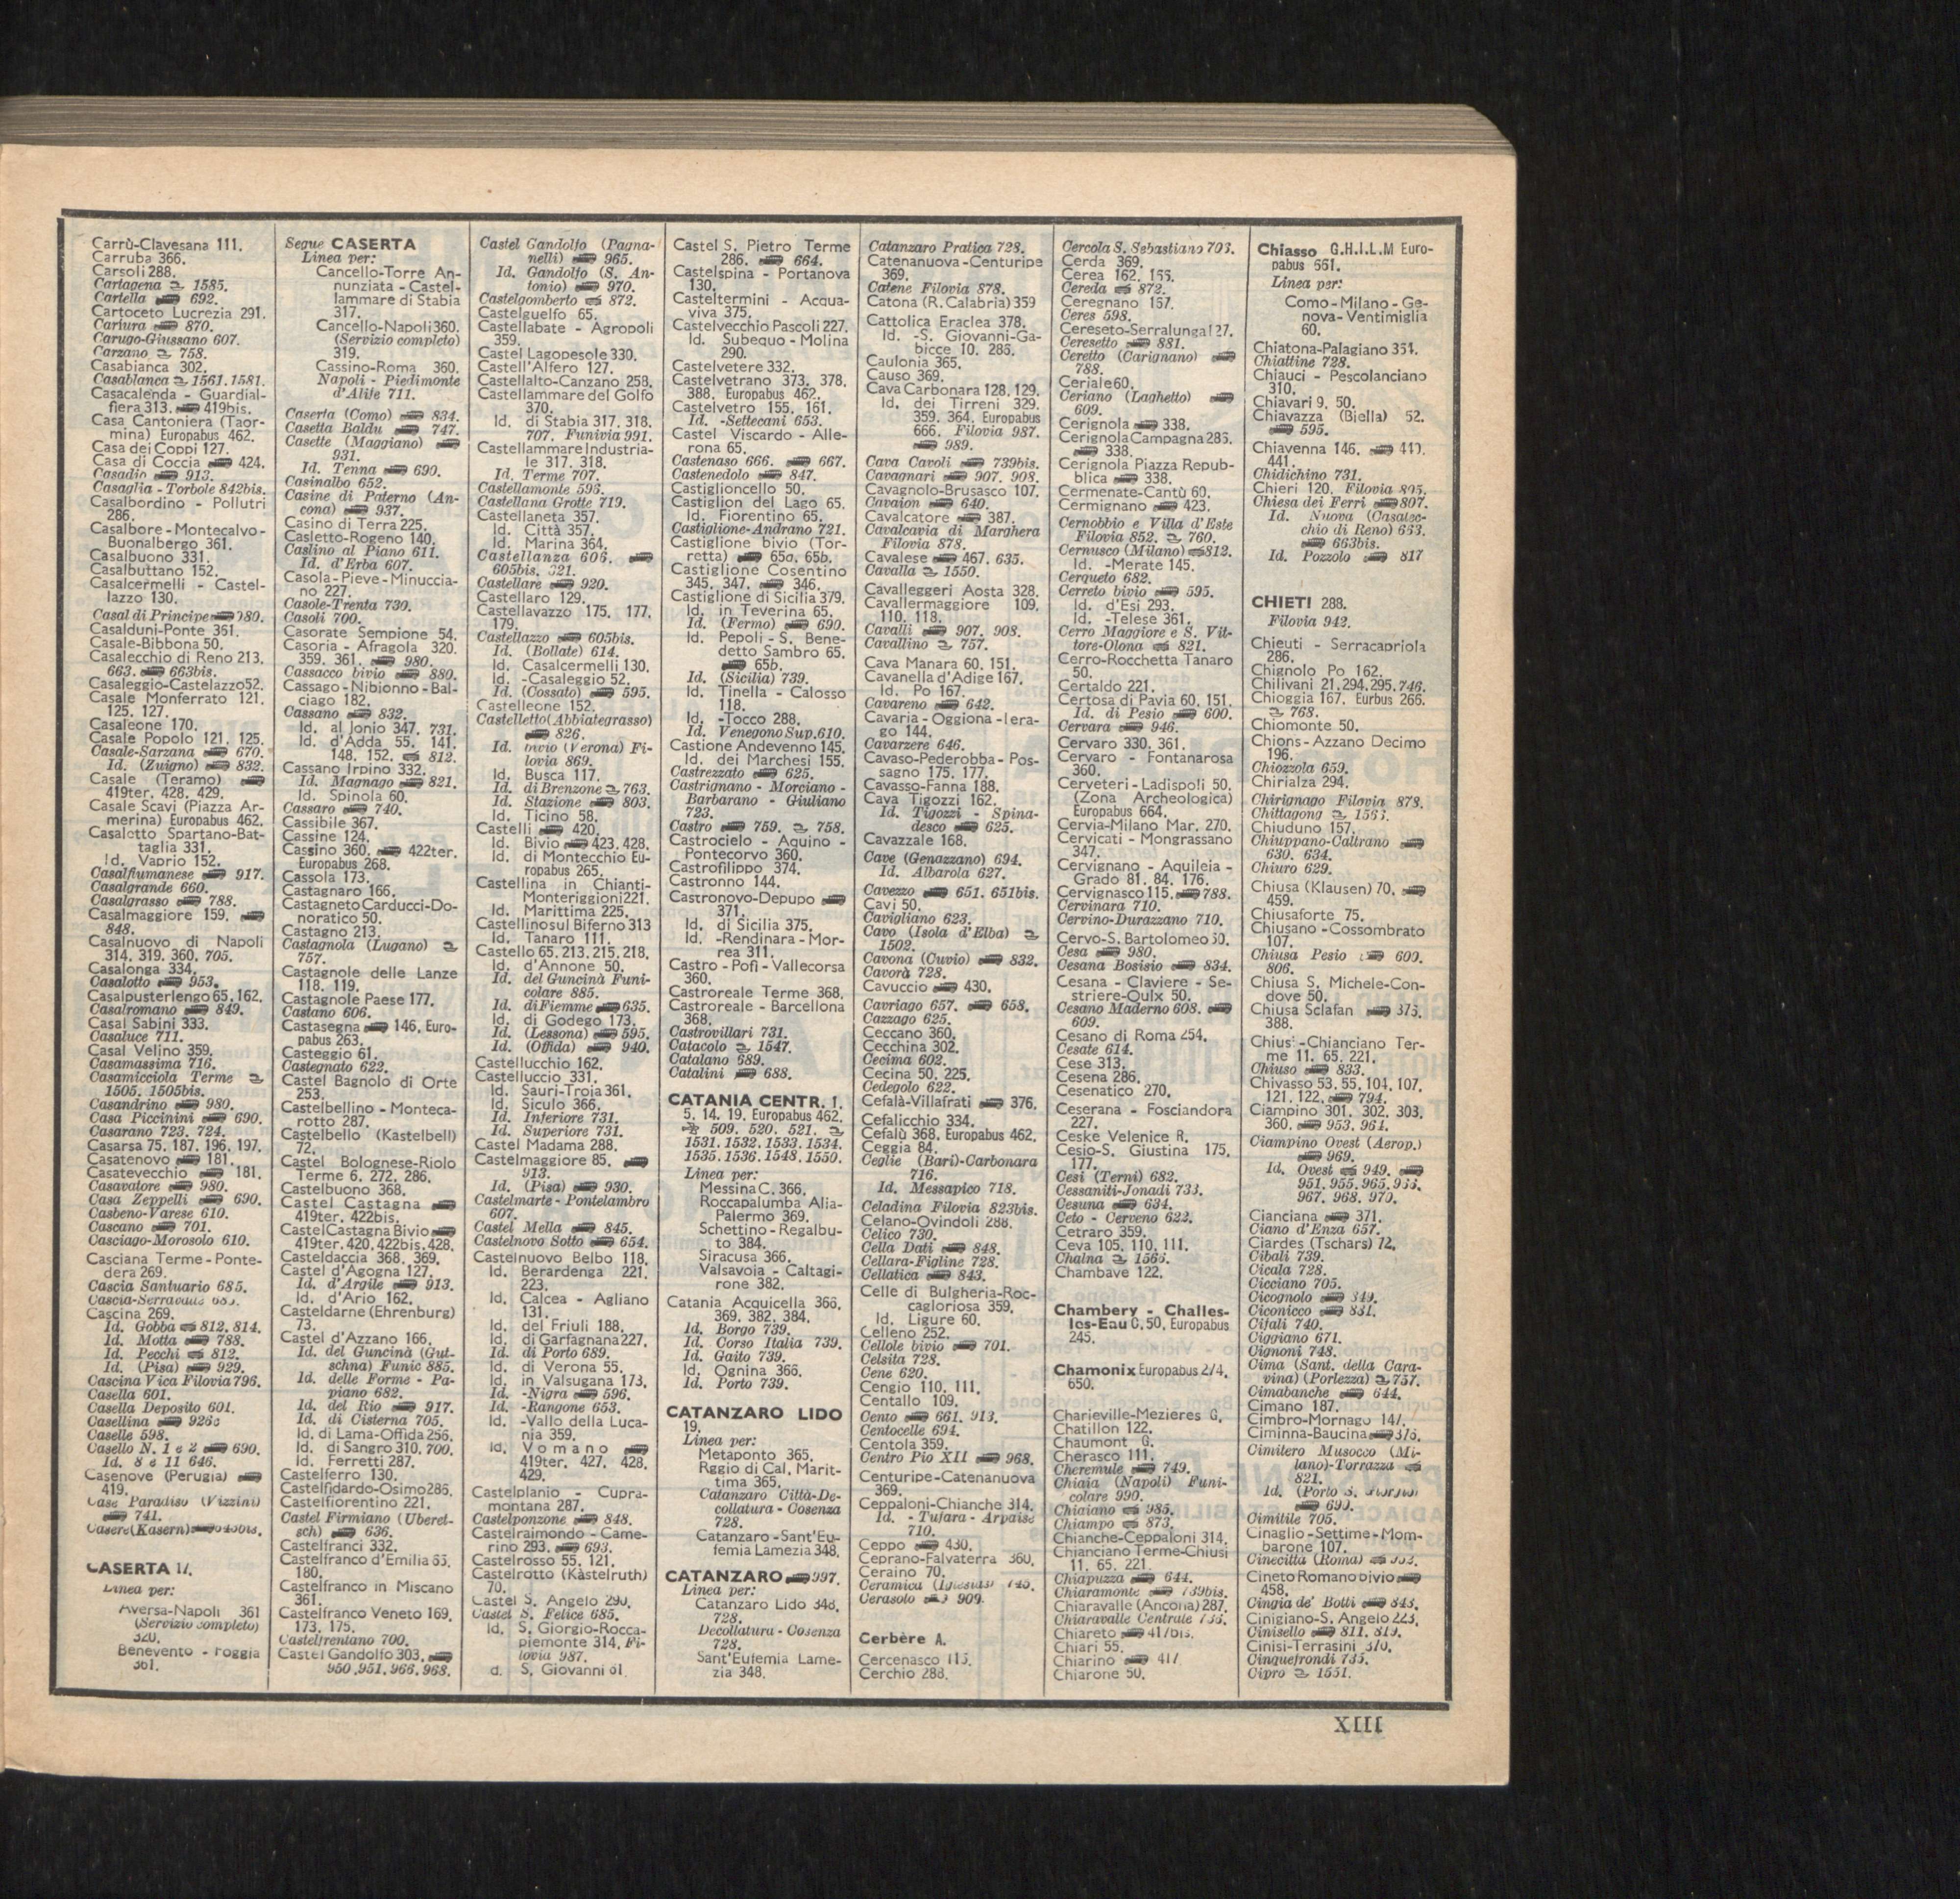 Carrù-Clavesana 111.
Carruba 366.
Carsoli 288.
Cartagena 1585.
Cartella 692.
Cartoceto Lucrezia 291.
Cartura 870.
Carugo-Giussano 607.
Carzano 758.
Casabianca 302.
Casablanca 1561. 1581.
Casacalenda - Guardial-
fiera 313. 419bis.
Casa Cantoniera (Taor-
mina) Europabus 462.
Casa dei Coppi 127.
Casa di Coccia 424.
Casadio 913.
Casaglia - Torbole 842bis.
Casalbordino - Pollutri
286.
Casalbore - Montecalvo -
Buonalbergo 361.
Casalbuono 331.
Casalbuttano 152.
Casalcermelli - Castel-
lazzo 130.
Casal di Principe 980.
Casalduni-Ponte 361.
Casale-Bibbona 50.
Casalecchio di Reno 213.
663. 663bis.
Casaleggio-Castelazzo 52.
Casale Monferrato 121.
125. 127.
Casaleone 170.
Casale Popolo 121. 125.
Casale-Sarzana 670.
Id. (Zuigno) 832.
Casale (Teramo)
419ter. 428. 429.
Casale Scavi (Piazza Ar-
merina) Europabus 462.
Casaletto Spartano-Bat-
taglia 331.
Id. Vaprio 152.
Casalfiumanese 917.
Casalgrande 660.
Casalgrasso 788.
Casalmaggiore 159.
848.
Casalnuovo di Napoli
314. 319. 360. 705.
Casalonga 334.
Casalotto 953.
Casalpusterlengo 65. 162.
Casalromano 849.
Casal Sabini 333.
Casaluce 711.
Casal Velino 359.
Casamassima 716.
Casamicciola Terme
1505. 1505bis.
Casandrino 980.
Casa Piccinini 690.
Casarano 723. 724.
Casarsa 75. 187. 196. 197.
Casatenovo 181.
Casatevecchio 181.
Casavatore 980.
Casa Zeppelli 690.
Casbeno-Varese 610.
Cascano 701.
Casciago-Morosolo 610.
Casciana Terme - Ponte-
dera 269.
Cascia Santuario 685.
Cascia-Serravalle 685.
Cascina 269.
Id. Gobba 812. 814.
Id. Motta 788.
Id. Pecchi 812.
Id. (Pisa) 929.
Cascina Vica Filovia 796.
Casella 601.
Casella Deposito 601.
Casellina 926c
Caselle 598.
Casello N. 1 e 2 690.
Id. 8 e 11 646.
Casenove (Perugia)
419.
Case Paradiso (Vizzini)
741.
Casere (Kasern)
CASERTA 17.
Linea per:
Aversa-Napoli 361
(Servizio completo)
320.
Benevento - Foggia
361.
Segue CASERTA
Linea per:
Cancello-Torre An-
nunziata - Castel-
lammare di Stabia
317.
Cancello-Napoli 360.
(Servizio completo)
319.
Cassino-Roma 360.
Napoli - Piedimonte
d'Alife 711.
Caserta (Como) 834.
Casetta Baldu 747.
Casette (Maggiano)
931.
Id. Tenna 690.
Casinalbo 652.
Casine di Paterno (An-
cona) 937.
Casino di Terra 225.
Casletto-Rogeno 140.
Caslino al Piano 611.
Id. d'Erba 607.
Casola - Pieve - Minuccia-
no 227.
Casole-Trenta 730.
Casoli 700.
Casorate Sempione 54.
Casoria - Afragola 320.
359. 361. 980.
Cassacco bivio 880.
Cassago - Nibionno - Bal-
ciago 182.
Cassano 832.
Id. al Jonio 347. 731.
Id. d'Adda 55. 141.
148. 152. 812.
Cassano Irpino 332.
Id. Magnago 821.
Id. Spinola 60.
Cassaro 740.
Cassibile 367.
Cassine 124.
Cassino 360. 422ter.
Europabus 268.
Cassola 173.
Castagnaro 166.
Castagneto Carducci-Do-
noratico 50.
Castagno 213.
Castagnola (Lugano)
757.
Castagnole delle Lanze
118. 119.
Castagnole Paese 177.
Castano 606.
Castasegna 146. Euro-
pabus 263.
Casteggio 61.
Castegnato 622.
Castel Bagnolo di Orte
253.
Castelbellino - Monteca-
rotto 287.
Castelbello (Kastelbell)
72.
Castel Bolognese-Riolo
Terme 6. 272. 286.
Castelbuono 368.
Castel Castagna
419ter. 422bis.
Castel Castagna Bivio
419ter. 420. 422bis. 428.
Casteldaccia 368. 369.
Castel d'Agogna 127.
Id. d'Argile 913.
Id. d'Ario 162.
Casteldarne (Ehrenburg)
73.
Castel d'Azzano 166.
Id. del Guncinà (Gut-
schna) Funic 885.
Id. delle Forme - Pa-
piano 682.
Id. del Rio 917.
Id. di Cisterna 705.
Id. di Lama-Offida 256.
Id. di Sangro 310. 700.
Id. Ferretti 287.
Castelferro 130.
Castelfidardo-Osimo 286.
Castelfiorentino 221.
Castel Firmiano (Uberet-
sch) 636.
Castelfranci 332.
Castelfranco d'Emilia 65.
180.
Castelfranco in Miscano
361.
Castelfranco Veneto 169.
173. 175.
Castelfrentano 700.
Castel Gandolfo 303.
950. 951. 966. 968.
Castel Gandolfo (Pagna-
nelli) 965.
Id. Gandolfo (S. An-
tonio) 970.
Castelgomberto 872.
Castelguelfo 65.
Castellabate - Agropoli
359.
Castel Lagopesole 330.
Castell'Alfero 127.
Castellalto-Canzano 258.
Castellammare del Golfo
370.
Id. di Stabia 317. 318.
707. Funivia 991.
Castellammare Industria-
le 317. 318.
Id. Terme 707.
Castellamonte 596.
Castellana Grotte 719.
Castellaneta 357.
Id. Città 357.
Id. Marina 364.
Castellanza 606.
605bis. 821.
Castellare 920.
Castellaro 129.
Castellavazzo 175. 177.
179.
Castellazzo 605bis.
Id. (Bollate) 614.
Id. Casalcermelli 130.
Id. -Casaleggio 52.
Id. (Cossato) 595.
Castelleone 152.
Castelletto (Abbiategrasso)
826.
Id. bivio (Verona) Fi-
lovia 869.
Id. Busca 117.
Id. di Brenzone 763.
Id. Stazione 803.
Id. Ticino 58.
Castelli 420.
Id. Bivio 423. 428.
Id. di Montecchio Eu-
ropabus 265.
Castellina in Chianti-
Monteriggioni 221.
Id. Marittima 225.
Castellino sul Biferno 313
Id. Tanaro 111.
Castello 65. 213. 215. 218.
Id. d'Annone 50.
Id. del Guncinà Funi-
colare 885.
Id. di Fiemme 635.
Id. di Godego 173.
Id. (Lessona) 595.
Id. (Offida) 940.
Castellucchio 162.
Castelluccio 331.
Id. Sauri-Troia 361.
Id. Siculo 366.
Id. Inferiore 731.
Id. Superiore 731.
Castel Madama 288.
Castelmaggiore 85.
913.
Id. (Pisa) 930.
Castelmarte - Pontelambro
607.
Castel Mella 845.
Castelnovo Sotto 654.
Castelnuovo Belbo 118.
Id. Berardenga 221.
223.
Id. Calcea - Agliano
131.
Id. del Friuli 188.
Id. di Garfagnana 227.
Id. di Porto 689.
Id. di Verona 55.
Id. in Valsugana 173.
Id. -Nigra 596.
Id. -Rangone 653.
Id. -Vallo della Luca-
nia 359.
Id. Vomano
419ter. 427. 428.
429.
Castelplanio - Cupra-
montana 287.
Castelponzone 848.
Castelraimondo - Came-
rino 293. 693.
Castelrosso 55. 121.
Castelrotto (Kastelruth)
70.
Castel S. Angelo 290.
Castel S. Felice 685.
Id. S. Giorgio-Rocca-
piemonte 314. Fi-
lovia 987.
d. S. Giovanni 61.
Castel S. Pietro Terme
286. 664.
Castelspina - Portanova
130.
Casteltermini - Acqua-
viva 375.
Castelvecchio Pascoli 227.
Id. Subequo - Molina
290.
Castelvetere 332.
Castelvetrano 373. 378.
388. Europabus 462.
Castelvetro 155. 161.
Id. -Settecani 653.
Castel Viscardo - Alle-
rona 65.
Castenaso 666. 667.
Castenedolo 847.
Castiglioncello 50.
Castiglion del Lago 65.
Id. Fiorentino 65.
Castiglione-Andrano 721.
Castiglione bivio (Tor-
retta) 65a. 65b.
Castiglione Cosentino
345. 347. 346.
Castiglione di Sicilia 379.
Id. in Teverina 65.
Id. (Fermo) 690.
Id. Pepoli - S. Bene-
detto Sambro 65.
65b.
Id. (Sicilia) 739.
Id. Tinella - Calosso
118.
Id. -Tocco 288.
Id. Venegono Sup. 610.
Castione Andevenno 145.
Id. dei Marchesi 155.
Castrezzato 625.
Castrignano - Morciano -
Barbarano - Giuliano
723.
Castro 759. 758.
Castrocielo - Aquino -
Pontecorvo 360.
Castrofilippo 374.
Castronno 144.
Castronovo-Depupo
371.
Id. di Sicilia 375.
Id. -Rendinara - Mor-
rea 311.
Castro - Pofi - Vallecorsa
360.
Castroreale Terme 368.
Castroreale - Barcellona
368.
Castrovillari 731.
Catacolo 1547.
Catalano 689.
Catalini 688.
CATANIA CENTR. 1.
5. 14. 19. Europabus 462.
509. 520. 521.
1531. 1532. 1533. 1534.
1535. 1536. 1548. 1550.
Linea per:
Messina C. 366.
Roccapalumba Alia-
Palermo 369.
Schettino - Regalbu-
to 384.
Siracusa 366.
Valsavoia - Caltagi-
rone 382.
Catania Acquicella 366.
369. 382. 384.
Id. Borgo 739.
Id. Corso Italia 739.
Id. Gaito 739.
Id. Ognina 366.
Id. Porto 739.
CATANZARO LIDO
19.
Linea per:
Metaponto 365.
Rggio di Cal. Marit-
tima 365.
Catanzaro Città-De-
collatura - Cosenza
728.
Catanzaro - Sant'Eu-
femia Lamezia 348.
CATANZARO 997.
Linea per:
Catanzaro Lido 348.
728.
Decollatura - Cosenza
728.
Sant'Eufemia Lame-
zia 348.
Catanzaro Pratica 728.
Catenanuova - Centuripe
369.
Catene Filovia 878.
Catona (R. Calabria) 359
Cattolica Eraclea 378.
Id. -S. Giovanni-Ga-
bicce 10. 286.
Caulonia 365.
Causo 369.
Cava Carbonara 128. 129.
Id. dei Tirreni 329.
359. 364. Europabus
666. Filovia 987.
989.
Cava Cavoli 739bis.
Cavagnari 907. 908.
Cavagnolo-Brusasco 107.
Cavaion 640.
Cavalcatore 387.
Cavalcavia di Marghera
Filovia 878.
Cavalese 467. 635.
Cavalla 1550.
Cavalleggeri Aosta 328.
Cavallermaggiore 109.
110. 118.
Cavalli 907. 908.
Cavallino 757.
Cava Manara 60. 151.
Cavanella d'Adige 167.
Id. Po 167.
Cavareno 642.
Cavaria - Oggiona - Jera-
go 144.
Cavarzere 646.
Cavaso-Pederobba - Pos-
sagno 175. 177.
Cavasso-Fanna 188.
Cava Tigozzi 162.
Id. Tigozzi - Spina-
desco 625.
Cavazzale 168.
Cave (Genazzano) 694.
Id. Albarola 627.
Cavezzo 651. 651bis.
Cavi 50.
Cavigliano 623.
Cavo (Isola d'Elba)
1502.
Cavona (Cuvio) 832.
Cavorà 728.
Cavuccio 430.
Cavriago 657. 658.
Cazzago 625.
Ceccano 360.
Cecchina 302.
Cecima 602.
Cecina 50. 225.
Cedegolo 622.
Cefalà-Villafrati 376.
Cefalicchio 334.
Cefalù 368. Europabus 462.
Ceggia 84.
Ceglie (Bari)-Carbonara
716.
Id. Messapico 718.
Celadina Filovia 823bis.
Celano-Ovindoli 288.
Celico 730.
Cella Dati 848.
Cellara-Figline 728.
Cellatica 843.
Celle di Bulgheria-Roc-
cagloriosa 359.
Id. Ligure 60.
Celleno 252.
Cellole bivio 701.
Celsita 728.
Cene 620.
Cengio 110. 111.
Centallo 109.
Cento 661. 913.
Centocelle 694.
Centola 359.
Centro Pio XII 968.
Centuripe - Catenanuova
369.
Ceppaloni-Chianche 314.
Id. - Tufara - Arpaise
710.
Ceppo 430.
Ceprano-Falvaterra 360.
Ceraino 70.
Ceramica (Iglesias) 745.
Cerasolo 909.
Cerbère A.
Cercenasco 115.
Cerchio 288.
Cercola S. Sebastiano 703.
Cerda 369.
Cerea 162. 166.
Cereda 872.
Ceregnano 167.
Ceres 598.
Cereseto-Serralunga 127.
Ceresetto 881.
Ceretto (Carignano)
788.
Ceriale 60.
Ceriano (Laghetto)
609.
Cerignola 338.
Cerignola Campagna 286.
338.
Cerignola Piazza Repub-
blica 338.
Cermenate-Cantù 60.
Cermignano 423.
Cernobbio e Villa d'Este
Filovia 852. 760.
Cernusco (Milano) 812.
Id. -Merate 145.
Cerqueto 682.
Cerreto bivio 595.
Id. d'Esi 293.
Id. -Telese 361.
Cerro Maggiore e S. Vit-
tore-Olona 821.
Cerro-Rocchetta Tanaro
50.
Certaldo 221.
Certosa di Pavia 60. 151.
Id. di Pesio 600.
Cervara 946.
Cervaro 330. 361.
Cervaro - Fontanarosa
360.
Cerveteri - Ladispoli 50.
(Zona Archeologica)
Europabus 664.
Cervia-Milano Mar. 270.
Cervicati - Mongrassano
347.
Cervignano - Aquileia -
Grado 81. 84. 176.
Cervignasco 115. 788.
Cervinara 710.
Cervino-Durazzano 710.
Cervo-S. Bartolomeo 50.
Cesa 980.
Cesana Bosisio 834.
Cesana - Claviere - Se-
striere-Oulx 50.
Cesano Maderno 608.
609.
Cesano di Roma 254.
Cesate 614.
Cese 313.
Cesena 286.
Cesenatico 270.
Ceserana - Fosciandora
227.
Ceske Velenice R.
Cesio-S. Giustina 175.
177.
Cesi (Terni) 682.
Cessaniti-Jonadi 733.
Cesuna 634.
Ceto - Cerveno 622.
Cetraro 359.
Ceva 105. 110. 111.
Chalna 1566.
Chambave 122.
Chambery - Challes-
les-Eau C. 50. Europabus
245.
Chamonix Europabus 274.
650.
Charleville-Mezieres G.
Chatillon 122.
Chaumont G.
Cherasco 111.
Cheremule 749.
Chiaia (Napoli) Funi-
colare 990.
Chiaiano 985.
Chiampo 873.
Chianche-Ceppaloni 314.
Chianciano Terme-Chiusi
11. 65. 221.
Chiapuzza 644.
Chiaramonte 739bis.
Chiaravalle (Ancona) 287.
Chiaravalle Centrale 736.
Chiareto 417bis.
Chiari 55.
Chiarino 417
Chiarone 50.
Chiasso G.H.I.L.M Euro-
pabus 661.
Linea per:
Como - Milano - Ge-
nova - Ventimiglia
60.
Chiatona-Palagiano 364.
Chiattine 728.
Chiauci - Pescolanciano
310.
Chiavari 9. 50.
Chiavazza (Biella) 52.
595.
Chiavenna 146. 440.
441.
Chidichino 731.
Chieri 120. Filovia 805.
Chiesa dei Ferri 807.
Id. Nuova (Casalec-
chio di Reno) 663.
663bis.
Id. Pozzolo 817
CHIETI 288.
Filovia 942.
Chieuti - Serracapriola
286.
Chignolo Po 162.
Chilivani 21. 294. 295. 746.
Chioggia 167. Eurbus 266.
768.
Chiomonte 50.
Chions - Azzano Decimo
196.
Chiozzola 659.
Chirialza 294.
Chirignago Filovia 878.
Chittagong 1563.
Chiuduno 157.
Chiuppano-Caltrano
630. 634.
Chiuro 629.
Chiusa (Klausen) 70.
459.
Chiusaforte 75.
Chiusano - Cossombrato
107.
Chiusa Pesio 600.
806.
Chiusa S. Michele-Con-
dove 50.
Chiusa Sclafan 376.
388.
Chiusi-Chianciano Ter-
me 11. 65. 221.
Chiuso 833.
Chivasso 53. 55. 104. 107.
121. 122. 794.
Ciampino 301. 302. 303.
360. 953. 964.
Ciampino Ovest (Aerop.)
969.
Id. Ovest 949.
951. 955. 965. 966.
967. 968. 970.
Cianciana 371.
Ciano d'Enza 657.
Ciardes (Tschars) 72.
Cibali 739.
Cicala 728.
Cicciano 705.
Cicognolo 849.
Ciconicco 881.
Cifali 740.
Ciggiano 671.
Cignoni 748.
Cima (Sant. della Cara-
vina) (Porlezza) 757.
Cimabanche 644.
Cimano 187.
Cimbro-Mornago 147.
Ciminna-Baucina 376.
Cimitero Musocco (Mi-
lano)-Torrazza
821.
Id. (Porto S. Giorgio)
690.
Cimitile 705.
Cinaglio - Settime - Mom-
barone 107.
Cinecittà (Roma)
Cineto Romano bivio
458.
Cingia de' Botti 848.
Cinigiano-S. Angelo 223.
Cinisello 811. 819.
Cinisi-Terrasini 370.
Cinquefrondi 735.
Cipro 1551.
XIII